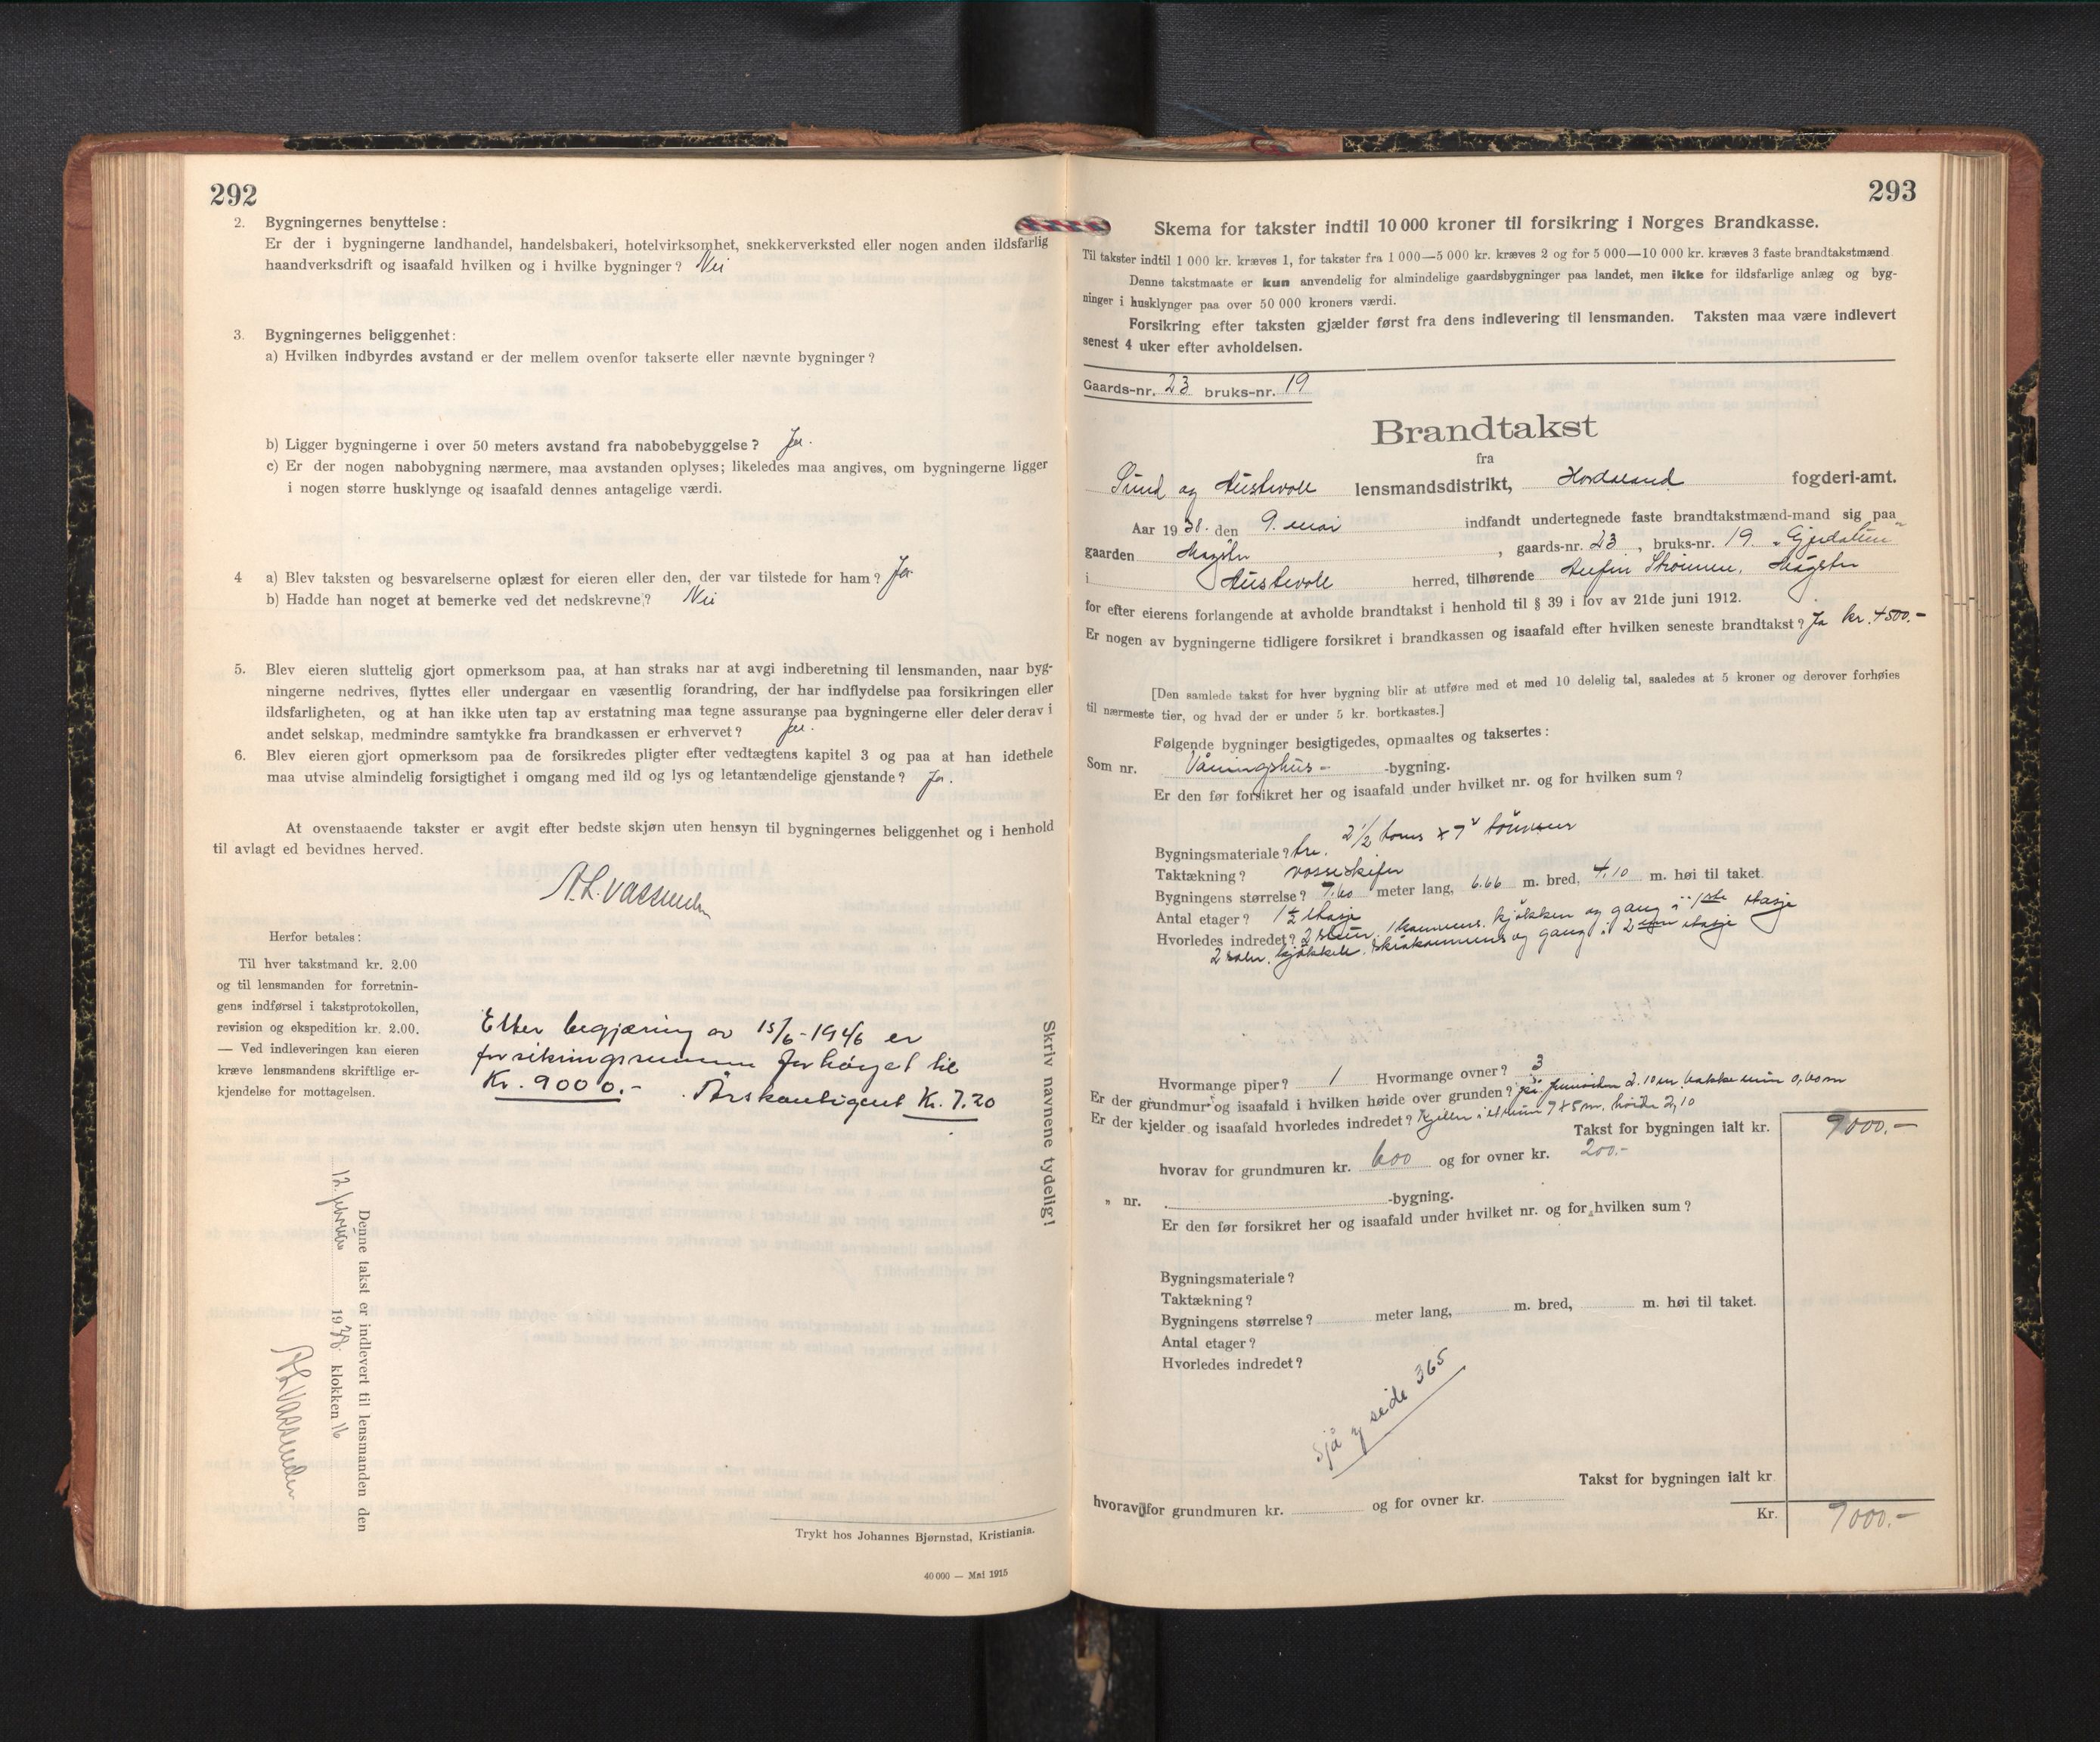 292
2. Bygningernes benyttelse:
Er der i bygningerne landhandel, handelsbakeri, hotelvirksomhet, snekkerverksted eller nogen anden ildsfarlig
haandverksdrift og isaafald hvilken og i hvilke bygninger? Nei
3. Bygningernes beliggenhet:
a) Hvilken indbyrdes avstand er der mellem ovenfor takserte eller nævnte bygninger?
b) Ligger bygningerne i over 50 meters avstand fra nabobebyggelse? Ja.
c) Er der nogen nabobygning nærmere, maa avstanden oplyses; likeledes maa angives, om bygningerne ligger
i nogen større husklynge og isaafald dennes antagelige værdi.
4 a) Blev taksten og besvarelserne oplæst for eieren eller den, der var tilstede for ham? Ja
b) Hadde han noget at bemerke ved det nedskrevne? Nei
5. Blev eieren sluttelig gjort opmerksom paa, at han straks har at avgi indberetning til lensmanden, naar byg-
ningerne nedrives, flyttes eller undergaar en væsentlig forandring, der har indflydelse paa forsikringen eller
ildsfarligheten, og at han ikke uten tap av erstatning maa tegne assuranse paa bygningerne eller deler derav i
andet selskap, medmindre samtykke fra brandkassen er erhvervet? Ja.
6. Blev eieren gjort opmerksom paa de forsikredes pligter efter vedtægtens kapitel 3 og paa at han idethele
maa utvise almindelig forsigtighet i omgang med ild og lys og letantændelige gjenstande? Ja.
At ovenstaaende takster er avgit efter bedste skjøn uten hensyn til bygningernes beliggenhet og i henhold
til avlagt ed bevidnes herved.
Herfor betales:
Til hver takstmand kr. 2.00
og til lensmanden for forretnin-
gens indførsel i takstprotokollen,
revision og ekspedition kr. 2.00.
— Ved indleveringen kan eieren
kræve lensmandens skriftlige er-
kjendelse for mottagelsen.
Etter begjæring av 15/6-1946 er
forsikringssummen forhöyet til
Kr. 9000.- Årskontigent Kr. 7.20
Skriv navnene tydelig!
Denne takst er indlevert til lensmanden den
12. februar 1938 klokken 16
Trykt hos Johannes Bjørnstad, Kristiania.
40 000 — Mai 1915
293
Skema for takster indtil 10 000 kroner til forsikring i Norges Brandkasse.
Til takster indtil 1 000 kr. kræves 1, for takster fra 1 000—5 000 kr. kræves 2 og for 5 000—10 000 kr. kræves 3 faste brandtakstmænd.
Denne takstmaate er kun anvendelig for almindelige gaardsbygninger paa landet, men ikke for ildsfarlige anlæg og byg-
ninger i husklynger paa over 50 000 kroners værdi.
Forsikring efter taksten gjælder først fra dens indlevering til lensmanden. Taksten maa være indlevert
senest 4 uker efter avholdelsen.
Gaards-nr. 23 bruks-nr. 19
Brandtakst
fra
Sund og Austevoll lensmandsdistrikt, Hordaland fogderi-amt.
Aar 1938. den 9. mai indfandt undertegnede faste brandtakstmænd-mand sig paa
gaarden Møgster, gaards-nr. 23, bruks-nr. 19.
i Austevoll herred, tilhørende Strømmen, Møgster
for efter eierens forlangende at avholde brandtakst i henhold til § 39 i lov av 21de juni 1912.
Er nogen av bygningerne tidligere forsikret i brandkassen og isaafald efter hvilken seneste brandtakst? Ja kr. 4500.-
[Den samlede takst for hver bygning blir at utføre med et med 10 delelig tal, saaledes at 5 kroner og derover forhøies
til nærmeste tier, og hvad der er under 5 kr. bortkastes.]
Følgende bygninger besigtigedes, opmaaltes og taksertes:
Som nr. Våningshus- -bygning.
Er den før forsikret her og isaafald under hvilket nr. og for hvilken sum?
Bygningsmateriale? tre. 2 1/2 toms x 7" tömmer
Taktækning? vosseskifer
Bygningens størrelse? 7.60 meter lang, 6.66 m. bred, 4.10 m. høi til taket.
Antal etager? 1 1/2 etasje
Hvorledes indredet? 2 stuer. 1 kammers. kjökken og gang i 1ste etasje
2 kjökken. og gang i 2 etasje
Hvormange piper? 1 Hvormange ovner? 3
Er der grundmur og isaafald i hvilken høide over grunden? på 2.10 m. 0,60 m
Er der kjelder og isaafald hvorledes indredet? Kjeller 7x5 m. höide 2,10
Takst for bygningen ialt kr. 9000.-
hvorav for grundmuren kr. 600 og for ovner kr. 200.-
„ nr. -bygning.
Er den før forsikret her og isaafald under hvilket nr. og for hvilken sum?
Bygningsmateriale?
Taktækning?
Bygningens størrelse? meter lang, m. bred, m. høi til taket.
Antal etager?
Hvorledes indredet?
Sjå side 365
Takst for bygningen ialt kr
hvorav for grundmuren kr. og for ovner kr.
Kr. 9000.-